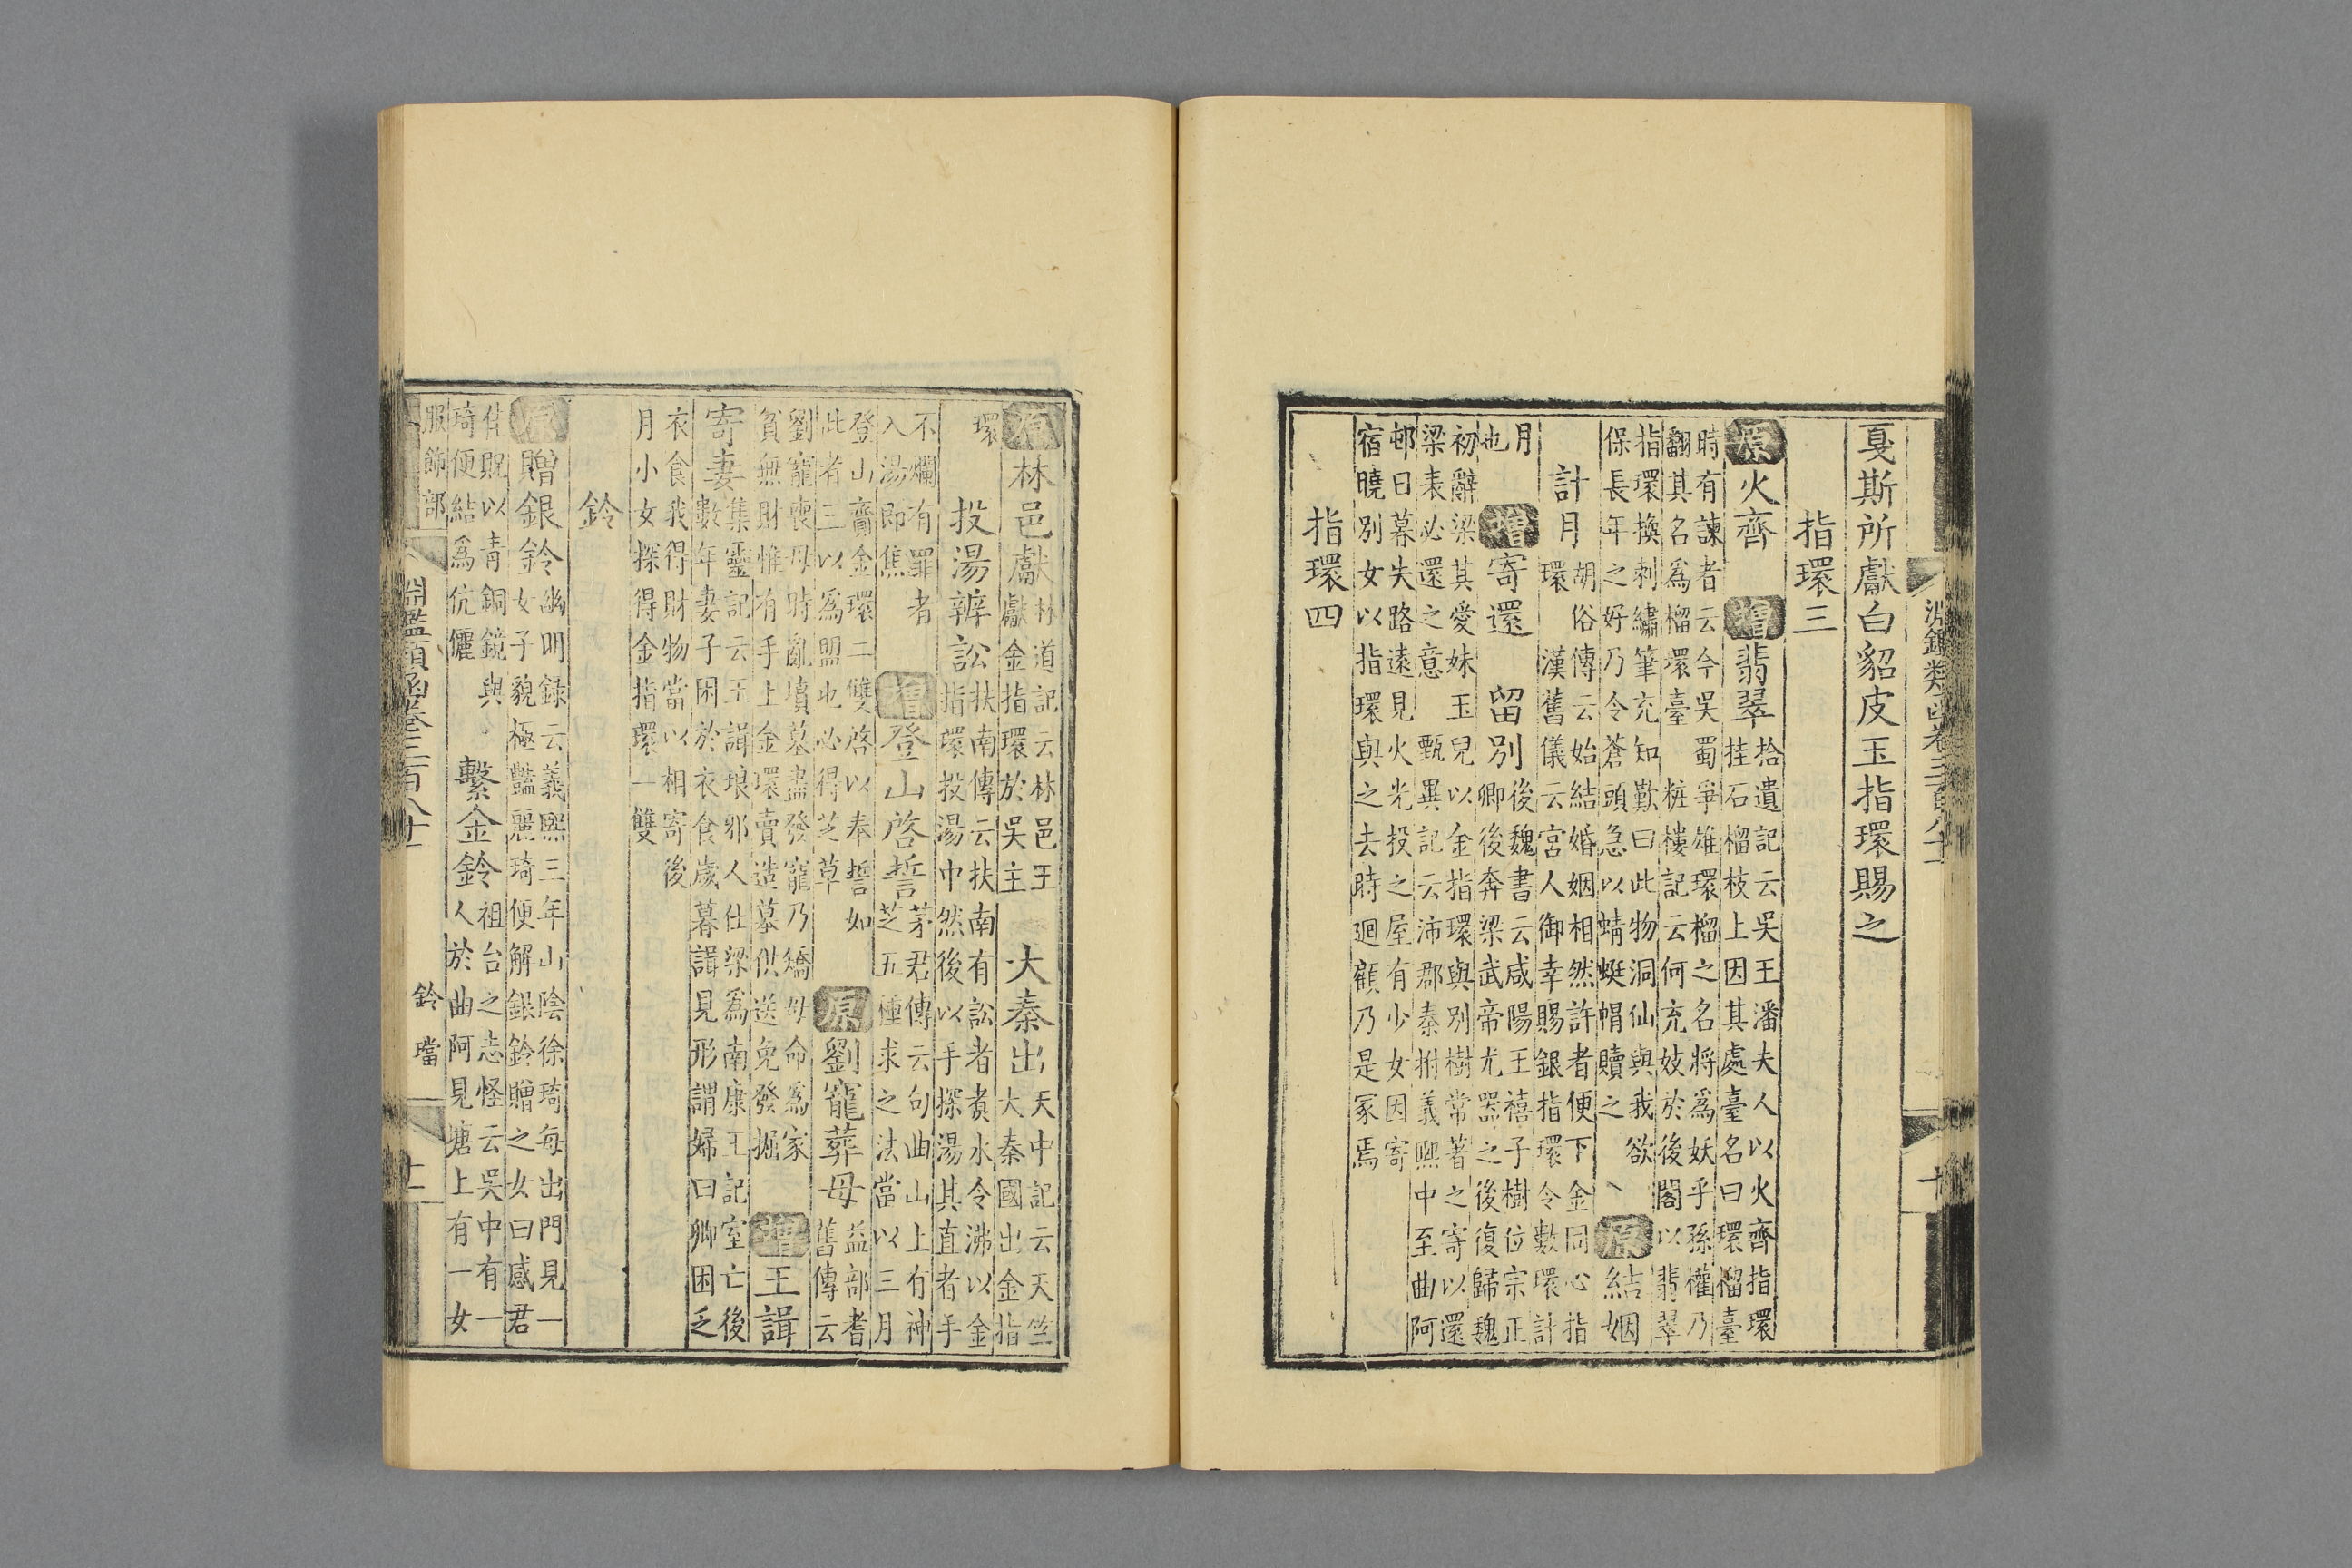 淵鑑類函卷三百八十一
十
戛斯所獻白貂皮玉指環賜之
指環三
原火齊 增翡翠拾遺記云吳王潘夫人以火齊指環
挂石榴枝上因其處臺名曰環榴臺
時有諫者云今吳蜀爭雄環榴之名將爲妖乎孫權乃
翻其名爲榴環臺 粧樓記云何充妓於後閣以翡翠
指環換刺繡筆充知歎曰此物洞仙與我欲
保長年之好乃令蒼頭急以蜻蜓帽贖之 原結姻
胡俗傳云始結婚姻相然許者便下金同心指
環
計月漢舊儀云宮人御幸賜銀指環令數環計
月
也 增寄還 留別後魏書云咸陽王禧子樹位宗正
卿後奔梁武帝尤器之後復歸魏
初辭梁其愛妹玉兒以金指環與別樹常著之寄以還
梁表必還之意 甄異記云沛郡秦拊義熙中至曲阿
邨日暮失路遠見火光投之屋有少女因寄
宿曉別女以指環與之去時廻顧乃是冢焉
指環四
原林邑獻林道記云林邑王
獻金指環於吳主 大秦出天中記云天竺
大秦國出金指
環
投湯辨訟扶南傳云扶南有訟者煑水令沸以金
指環投湯中然後以手探湯其直者手
不爛有罪者
入湯即焦 增登山啓誓茅君傳云句曲山上有神
芝五種求之法當以三月
登山齎金環二雙啓以奉誓如
此者三以爲盟也必得芝草 原劉寵葬母益部耆
舊傳云
劉寵喪母時亂墳墓盡發寵乃矯母命爲家
貧無財惟有手上金環賣造墓供送免發掘 增王諿
寄妻集靈記云王諿琅邪人仕梁爲南康王記室亡後
數年妻子困於衣食歲暮諿見形謂婦曰卿困乏
衣食我得財物當以相寄後
月小女探得金指環一雙
鈴
原贈銀鈴幽明録云義熙三年山陰徐琦每出門見一
女子貌極豔麗琦便解銀鈴贈之女曰感君
佳貺以靑銅鏡與
琦便結爲伉儷 繫金鈴祖台之志怪云吳中有一
人於曲阿見塘上有一女
服飾部
淵鑑類函卷三百八十一
鈴 璫
十一